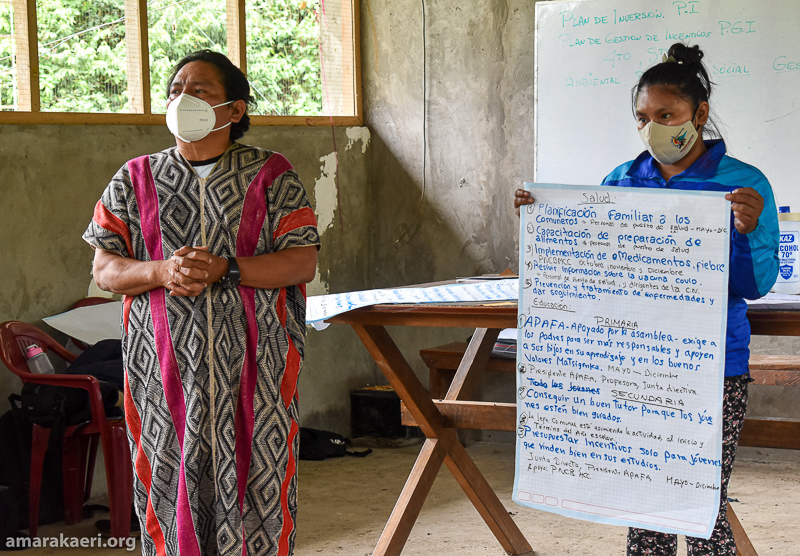 PLAN DE INVERSIÓN P.I
PLAN DE GESTIÓN DE INCENTIVOS P.G.I
AMBIENTAL
SOCIAL
Salud:
① Planificación Familiar a los
Comuneros → Personal de puesto de salud - MAYO - DIC
② Capacitación de preparación de
alimentos → personas de puesto de
salud
③ Implementación de Medicamentos, fiebre
PNCBMCC octubre, noviembre y Diciembre
④ Revisar información sobre la vacuna covid.
Personal de puesto de salud, y dirigentes de la C.N.
⑤ Prevención y tratamiento de enfermedades y
dar seguimiento.
Educación:
PRIMARIA
① APAFA - Apoyado por la asamblea - exige a
los padres para ser mas responsables y apoyen
a sus hijos en su aprendizaje y en los buenos
Valores Matsigenka. MAYO - Diciembre
Presidente APAFA, Profesora, Junta directiva
Todo los Jovenes SECUNDARIA
② Conseguir un buen Tutor para que los jóve
nes esten bien guiados.
La Jefa Comunal está asumiendo la actividad, al inicio y
Termino del Año escolar.
③ Presupuestar Incentivos solo para jóvenes
que rinden bien en sus estudios.
Junta Directiva, Presidente APAFA MAYO - Diciembre
Apoyo PNCB MCC
ALCOHOL
70°
amarakaeri.org